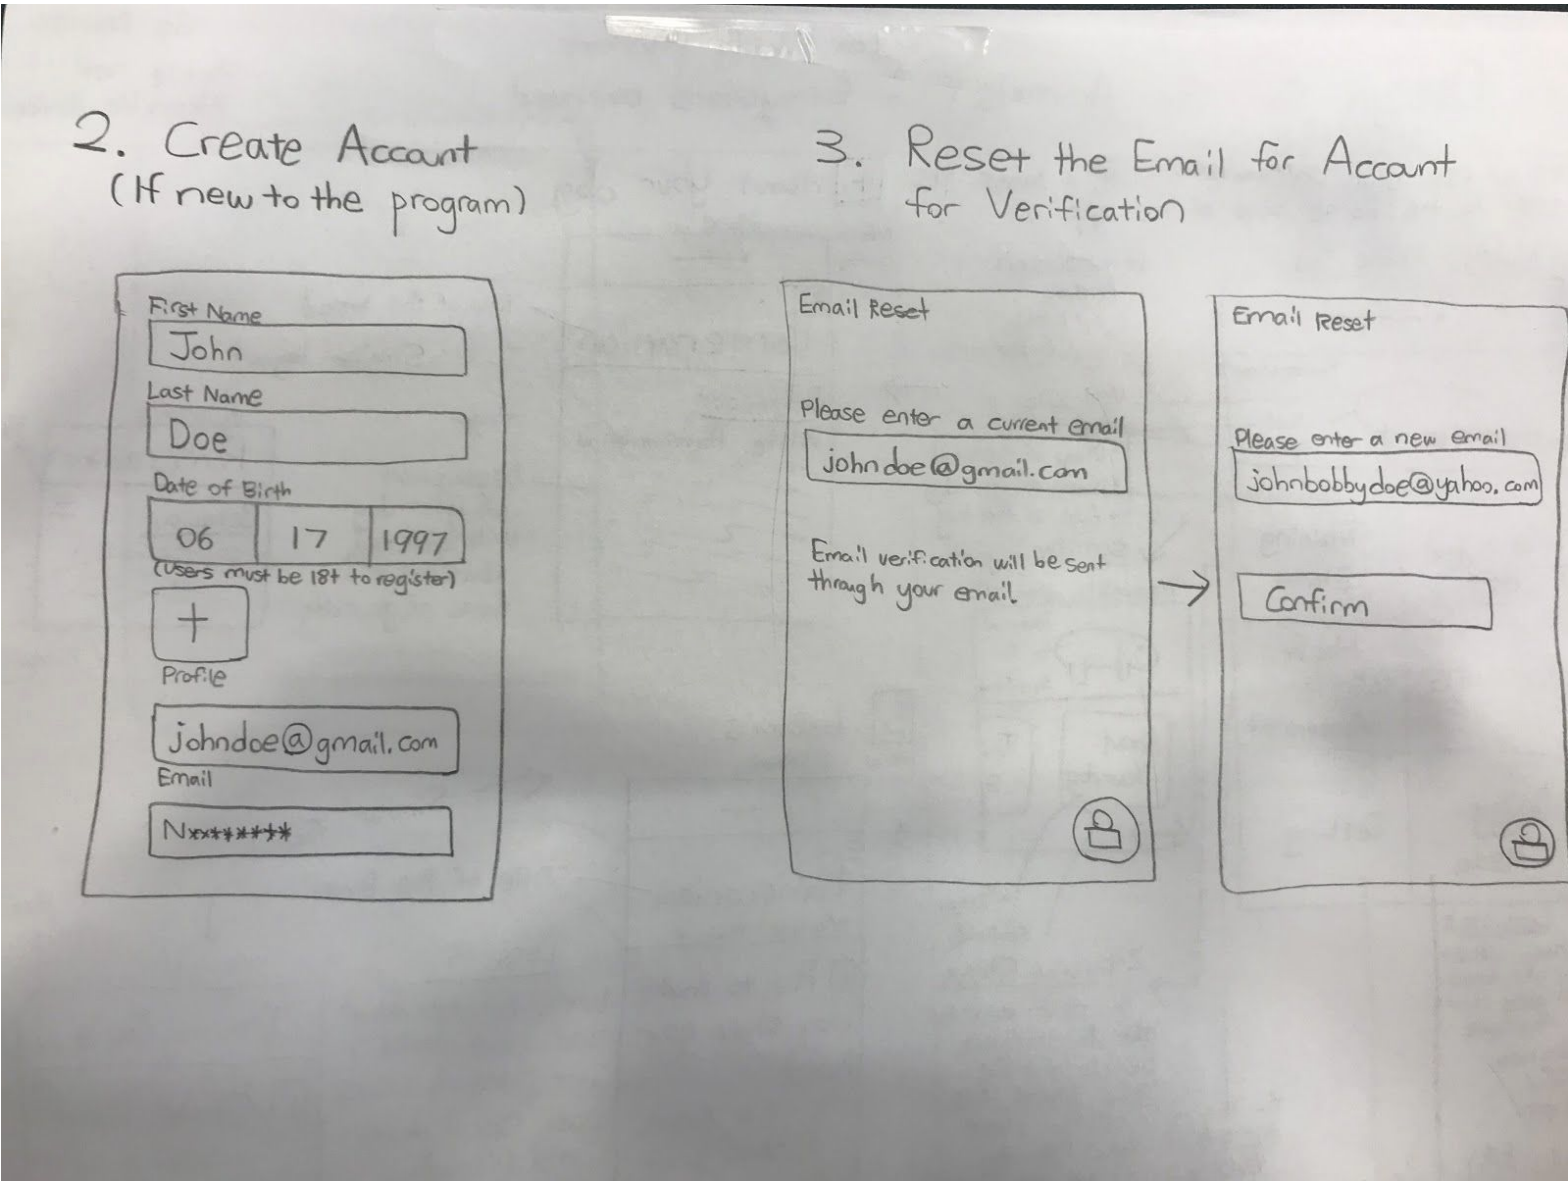 2. Create Account
(If new to the program)
First Name
John
Last Name
Doe
Date of Birth
06 17 1997
(users must be 18+ to register)
+
Profile
johndoe@gmail.com
Email
N********
3. Reset the Email for Account
for Verification
Email Reset
Please enter a current email
johndoe@gmail.com
Email verification will be sent
through your email
Email Reset
Please enter a new email
johnbobbydoe@yahoo.com
Confirm